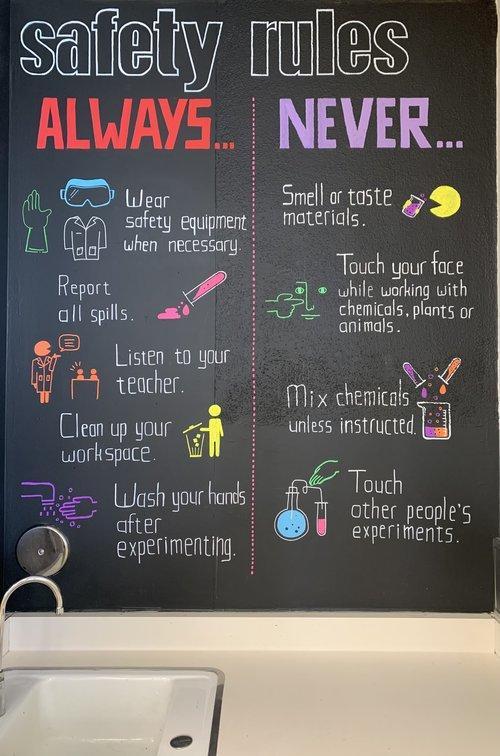 safety rules
ALWAYS...
Wear
safety equipment
when necessary.
Report
all spills.
Listen to your
teacher.
Clean up your
workspace.
Wash your hands
after
experimenting.
NEVER...
Smell or taste
materials.
Touch your face
while working with
chemicals, plants or
animals.
Mix chemicals
unless instructed.
Touch
other people's
experiments.